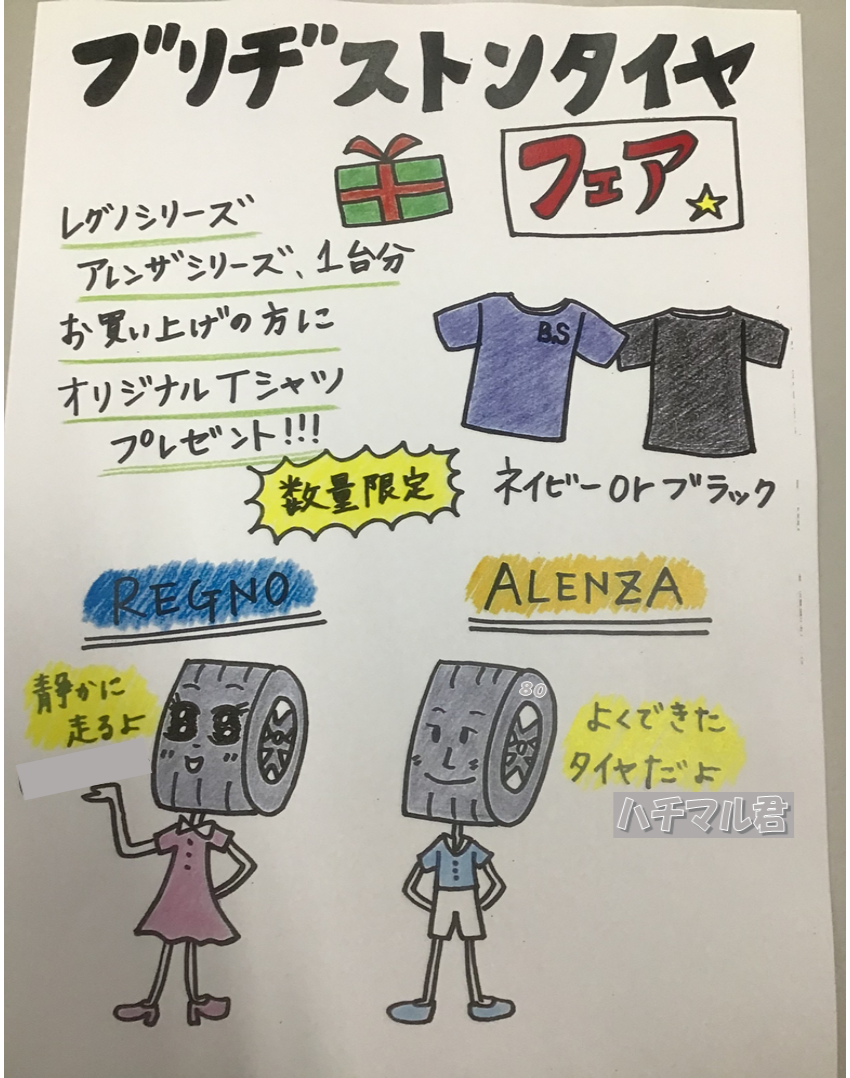 ブリヂストンタイヤ
フェア
レグノシリーズ
アレンザシリーズ、1台分
お買い上げの方に
オリジナルTシャツ
プレゼント!!!
B.S
数量限定
ネイビーorブラック
REGNO
ALENZA
静かに
走るよ
80
よくできた
タイヤだよ
ハチマル君